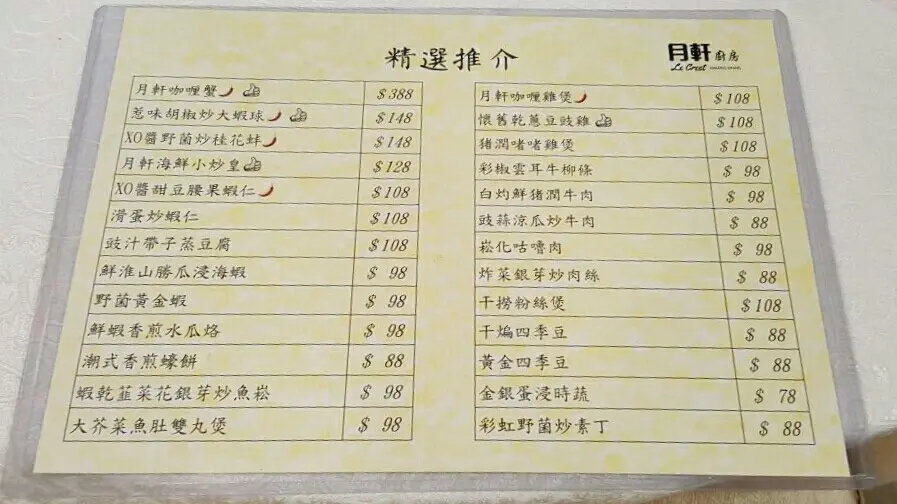 精選推介
月軒廚房
Le Crest
月軒咖喱蟹 $388
惹味胡椒炒大蝦球 $148
XO醬野菌炒桂花蚌 $148
月軒海鮮小炒皇 $128
XO醬甜豆腰果蝦仁 $108
滑蛋炒蝦仁 $108
豉汁帶子蒸豆腐 $108
鮮淮山勝瓜浸海蝦 $ 98
野菌黃金蝦 $ 98
鮮蝦香煎水瓜烙 $ 98
潮式香煎蠔餅 $ 88
蝦乾韮菜花銀芽炒魚崧 $ 98
大芥菜魚肚雙丸煲 $ 98
月軒咖喱雞煲 $108
懷舊乾蔥豆豉雞 $108
猪潤啫啫雞煲 $108
彩椒雲耳牛柳條 $ 98
白灼鮮猪潤牛肉 $ 98
豉蒜涼瓜炒牛肉 $ 88
崧化咕嚕肉 $ 98
炸菜銀芽炒肉絲 $ 88
干撈粉絲煲 $108
干煸四季豆 $ 88
黃金四季豆 $ 88
金銀蛋浸時蔬 $ 78
彩虹野菌炒素丁 $ 88